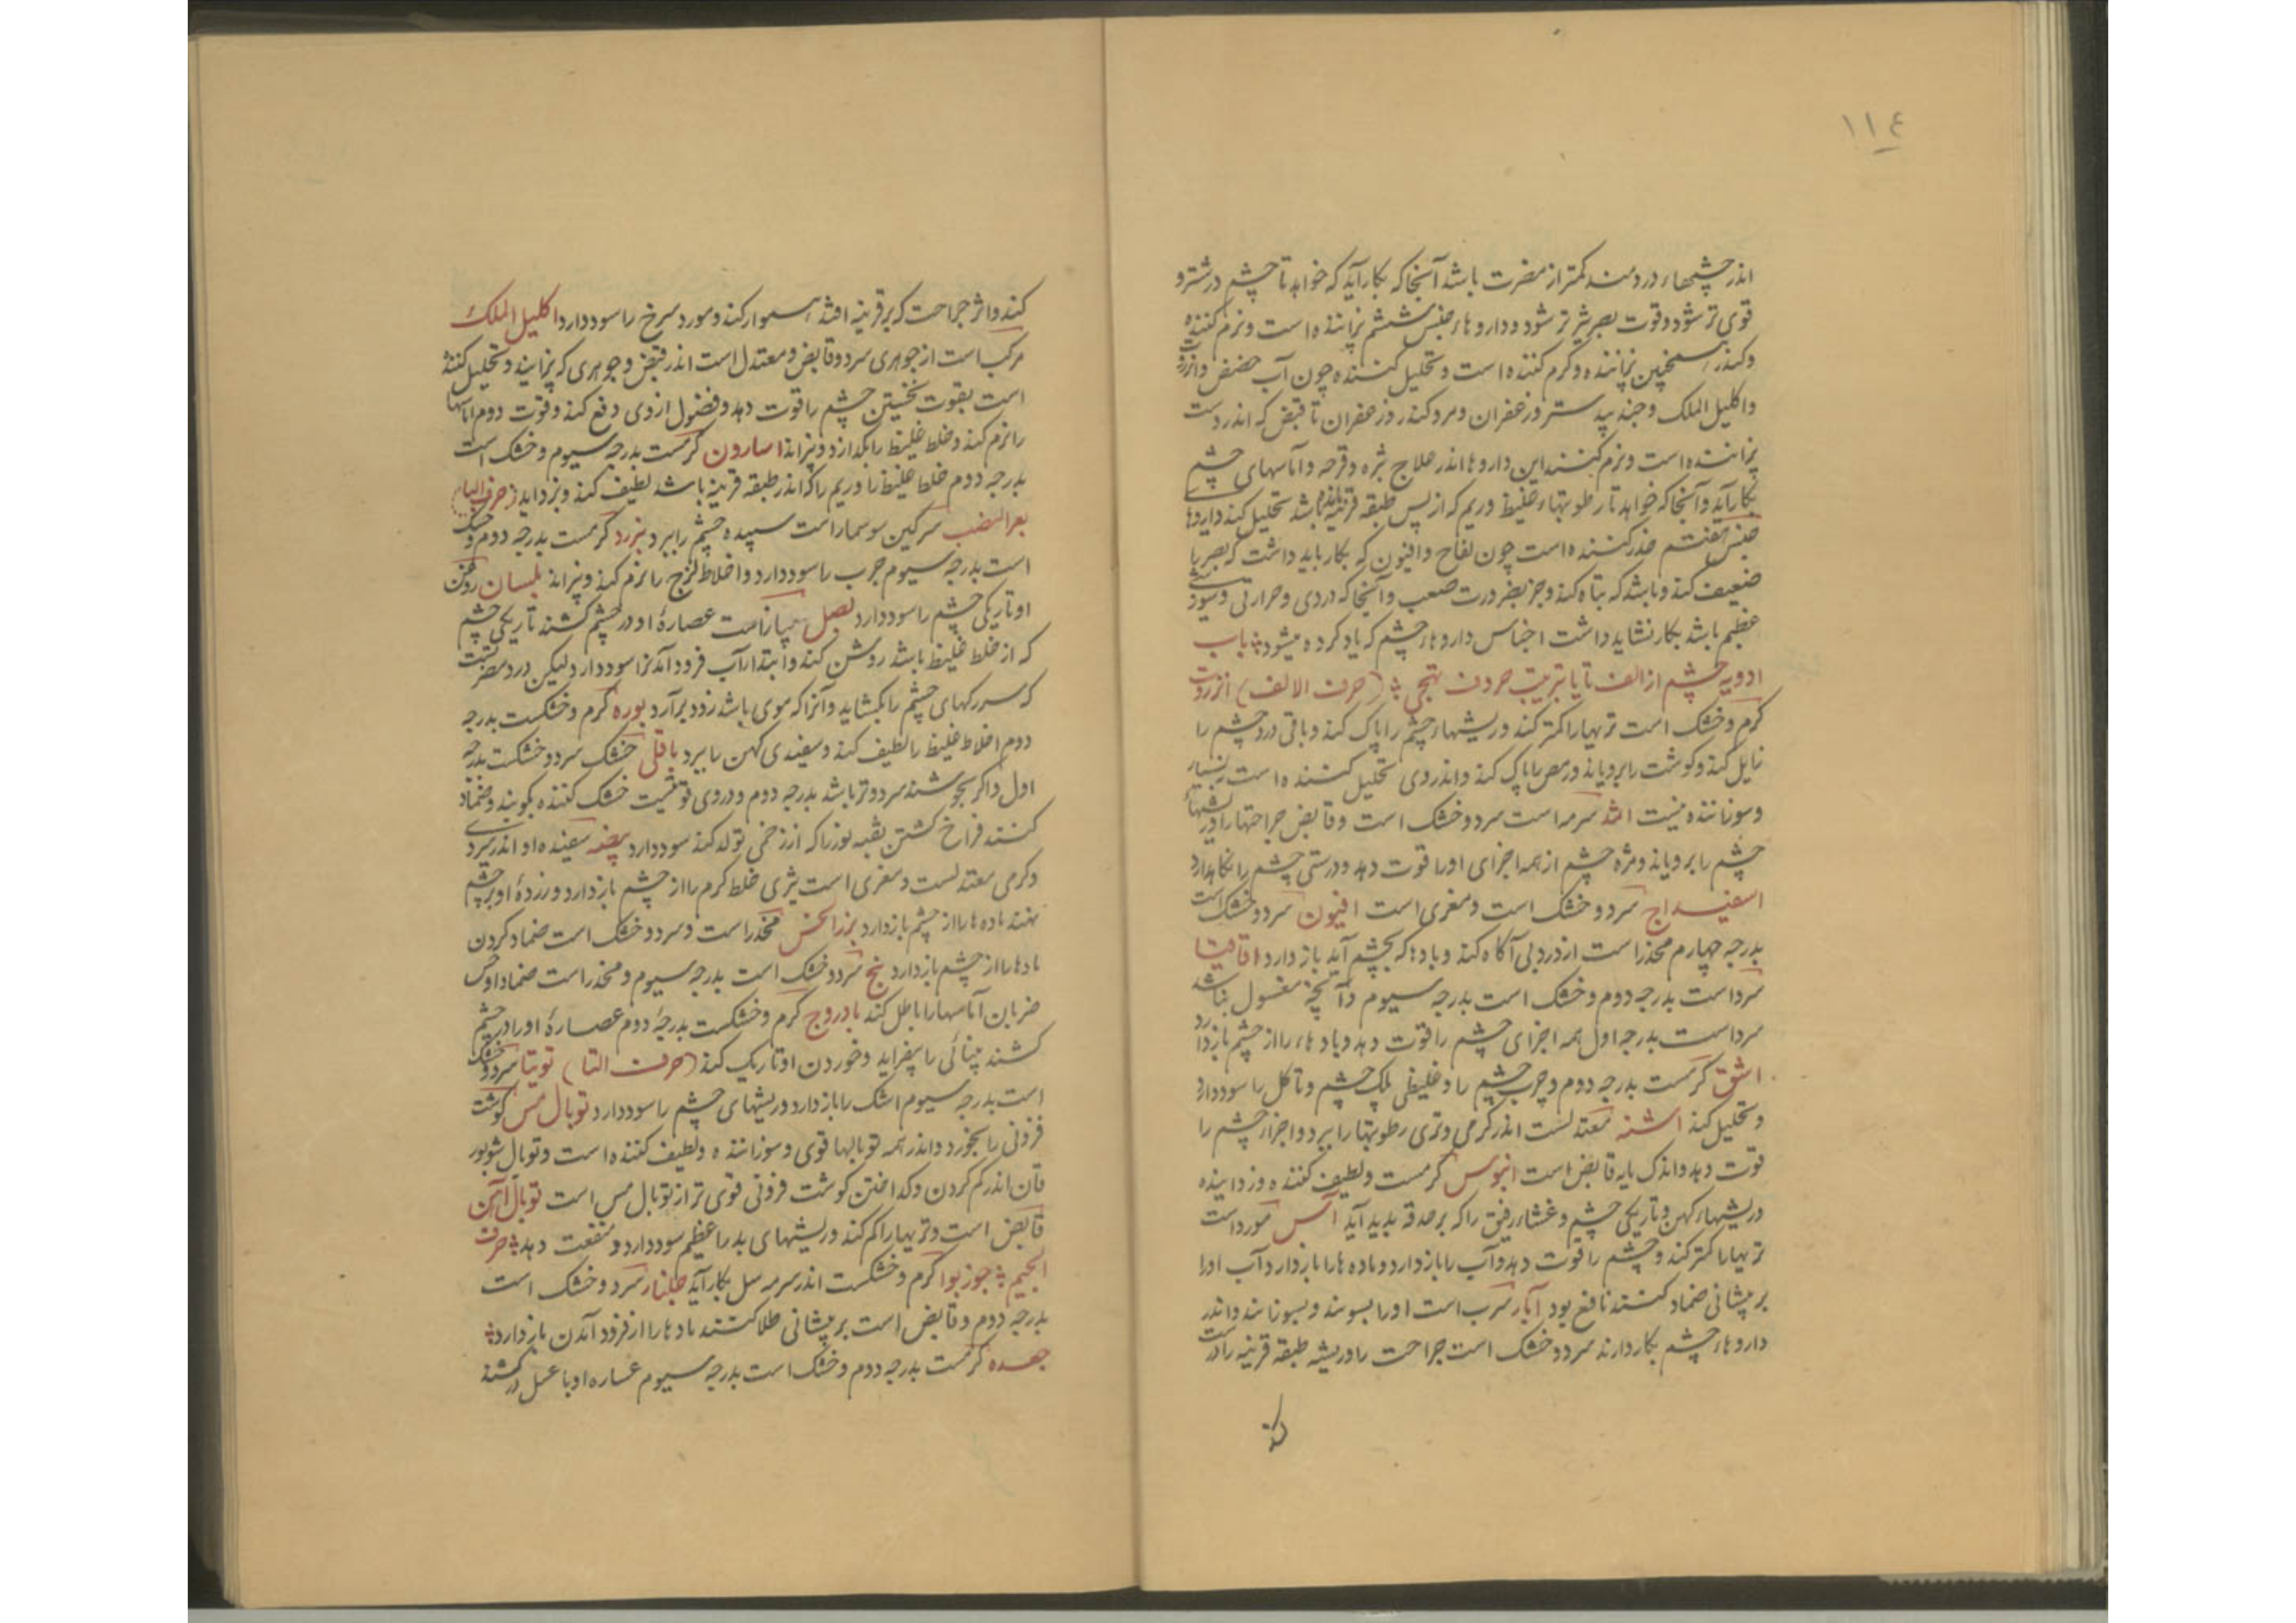 ١١٤
اندر چشمهاء دردمند کمتر از مضرت باشد آنجا که بکار آید که خواهد تا چشم درشتر و
قوی تر شود و قوت بصر نیز تر شود و داروهاء جنس ششم پزاننده است و نرم کننده
وکندر همچنین پزاننده و گرم کننده است و تحلیل کننده چون آب حضض و انزروت
واکلیل الملک و جند بیدستر و زعفران و مر و کندر و زعفران تا قبض که اندر دست
پزاننده است و نرم کننده این داروها اندر علاج بثره و قرحه و آماسهای چشم
بکار آید و آنجا که خواهد تا رطوبتهاء غلیظ و ریم که از پس طبقه قرنیه باشد تحلیل کند داروها
جنس هفتم خدر کننده است چون لفاح و افیون که بکار باید داشت که بصر را
ضعیف کند و باشد که تباه کند و جز بضرورت صعب و آنجا که دردی و حرارتی و
عظیم باشد بکار نشاید داشت اجناس داروهاء چشم که یاد کرده میشود باب
ادویه چشم از الف تا یا بترتیب حروف تهجی (حرف الالف) انزروت
گرم و خشک است تریهارا کمتر کند و ریشهاء چشم را پاک کند و باقی درد چشم را
زایل کند و گوشت را برویاند و رمص را پاک کند و اندر وی تحلیل کننده است
وسوزاننده نیست اثمد سرمه است سرد و خشک است و قابض جراحتها را و ریشهاء
چشم را برویاند و مژه چشم از همه اجزای او را قوت دهد و درستی چشم را نگاهدارد
اسفیداج سرد و خشک است و مغری است افیون سرد و خشک است
بدرجه چهارم مخدر است از درد بی آگاه کند و بادها که بچشم آید باز دارد اقاقیا
سرد است بدرجه دوم و خشک است بدرجه سیوم و آنچه مغسول باشد
سرد است بدرجه اول همه اجزای چشم را قوت دهد و بادهاء را از چشم باز دارد
اشق گرمست بدرجه دوم و جرب چشم را و غلیظی پلک چشم و تاکل را سود دارد
وتحلیل کند اشنه معتدلست اندر گرمی و تری رطوبتها را ببرد و اجزاء چشم را
قوت دهد و اندک مایه قابض است ابنوس گرمست و لطیف کننده و زداینده
وریشهاء کهن و تاریکی چشم و غشاء رقیق را که بر حدقه پدید آید آس مورد است
تریها را کمتر کند و چشم را قوت دهد و آب را باز دارد و ماده ها را باز دارد و آب او را
بر پیشانی ضماد کنند نافع بود آبار سرب است او را بسوزند و بسوزانند و اندر
داروهاء چشم بکار دارند سرد و خشک است جراحت را و ریشه طبقه قرنیه را درست
کند
کند و اثر جراحت که بر قرنیه افتد هموار کند و مورد سرخ را سود دارد اکلیل الملک
مرکب است از جوهری سرد و قابض و معتدل است اندر قبض و جوهری که پزایند و تحلیل کننده
است بقوت نخستین چشم را قوت دهد و فضول از وی دفع کند و قوت دوم آماسها
را نرم کند و خلط غلیظ را بگدازد و پزاند اسارون گرمست بدرجه سیوم و خشک است
بدرجه دوم خلط غلیظ را و ریم را که اندر طبقه قرنیه باشد لطیف کند و بزداید (حرف الباء)
بعر الضب سرگین سوسمار است سپیده چشم را ببرد بزرد گرمست بدرجه دوم و خشک
است بدرجه سیوم جرب را سود دارد و اخلاط لزج را نرم کند و پزاند بلسان روغن
او تاریکی چشم را سود دارد بصل پیاز است عصارهٔ او در چشم کشند تاریکی چشم
که از خلط غلیظ باشد روشن کند و ابتدار آب فرود آمدن را سود دارد لیکن در مضرتست
که سر رگهای چشم را بگشاید و آنرا که موی باشد زود برآرد بوره گرم و خشکست بدرجه
دوم اخلاط غلیظ را لطیف کند و سفیدی کهن را ببرد باقلی خشک سرد و خشکست بدرجه
اول و اگر بجوشند سرد و تر باشد بدرجه دوم و در وی قوتیست خشک کننده بکوبند و ضماد
کنند فراخ گشتن ثقبه نور را که از زخمی تولد کند سود دارد بیضه سفیده او اندر سردی
وگرمی معتدلست و مغری است تیزی خلط گرم را از چشم باز دارد و زردهٔ او بر چشم
نهند ماده ها را از چشم باز دارد بزر الخس مخدر است و سرد و خشک است ضماد کردن
مادها را از چشم باز دارد بنج سرد و خشک است بدرجه سیوم و مخدر است ضماد او
ضربان آماسها را باطل کند بادروج گرم و خشکست بدرجهٔ دوم عصارهٔ او را در چشم
کشند بینائی را بیفزاید و خوردن او تاریک کند (حرف التا) توتیا سرد و خشک
است بدرجه سیوم اشک را باز دارد و ریشهای چشم را سود دارد توبال مس گوشت
فزونی را بخورد و اندر همه توبالها قوی و سوزاننده و لطیف کننده است و توبال شوبور
قان اندر کم کردن و گداختن گوشت فزونی قوی تر از توبال مس است توبال آهن
قابض است و تریها را کم کند و ریشهای بد را عظیم سود دارد و منفعت دهد حرف
الجیم جوز بوا گرم و خشکست اندر سرمه سل بکار آید جلنار سرد و خشک است
بدرجه دوم و قابض است بر پیشانی طلا کنند مادها را از فرود آمدن باز دارد
جعده گرمست بدرجه دوم و خشک است بدرجه سیوم عصاره او با عسل در کشند